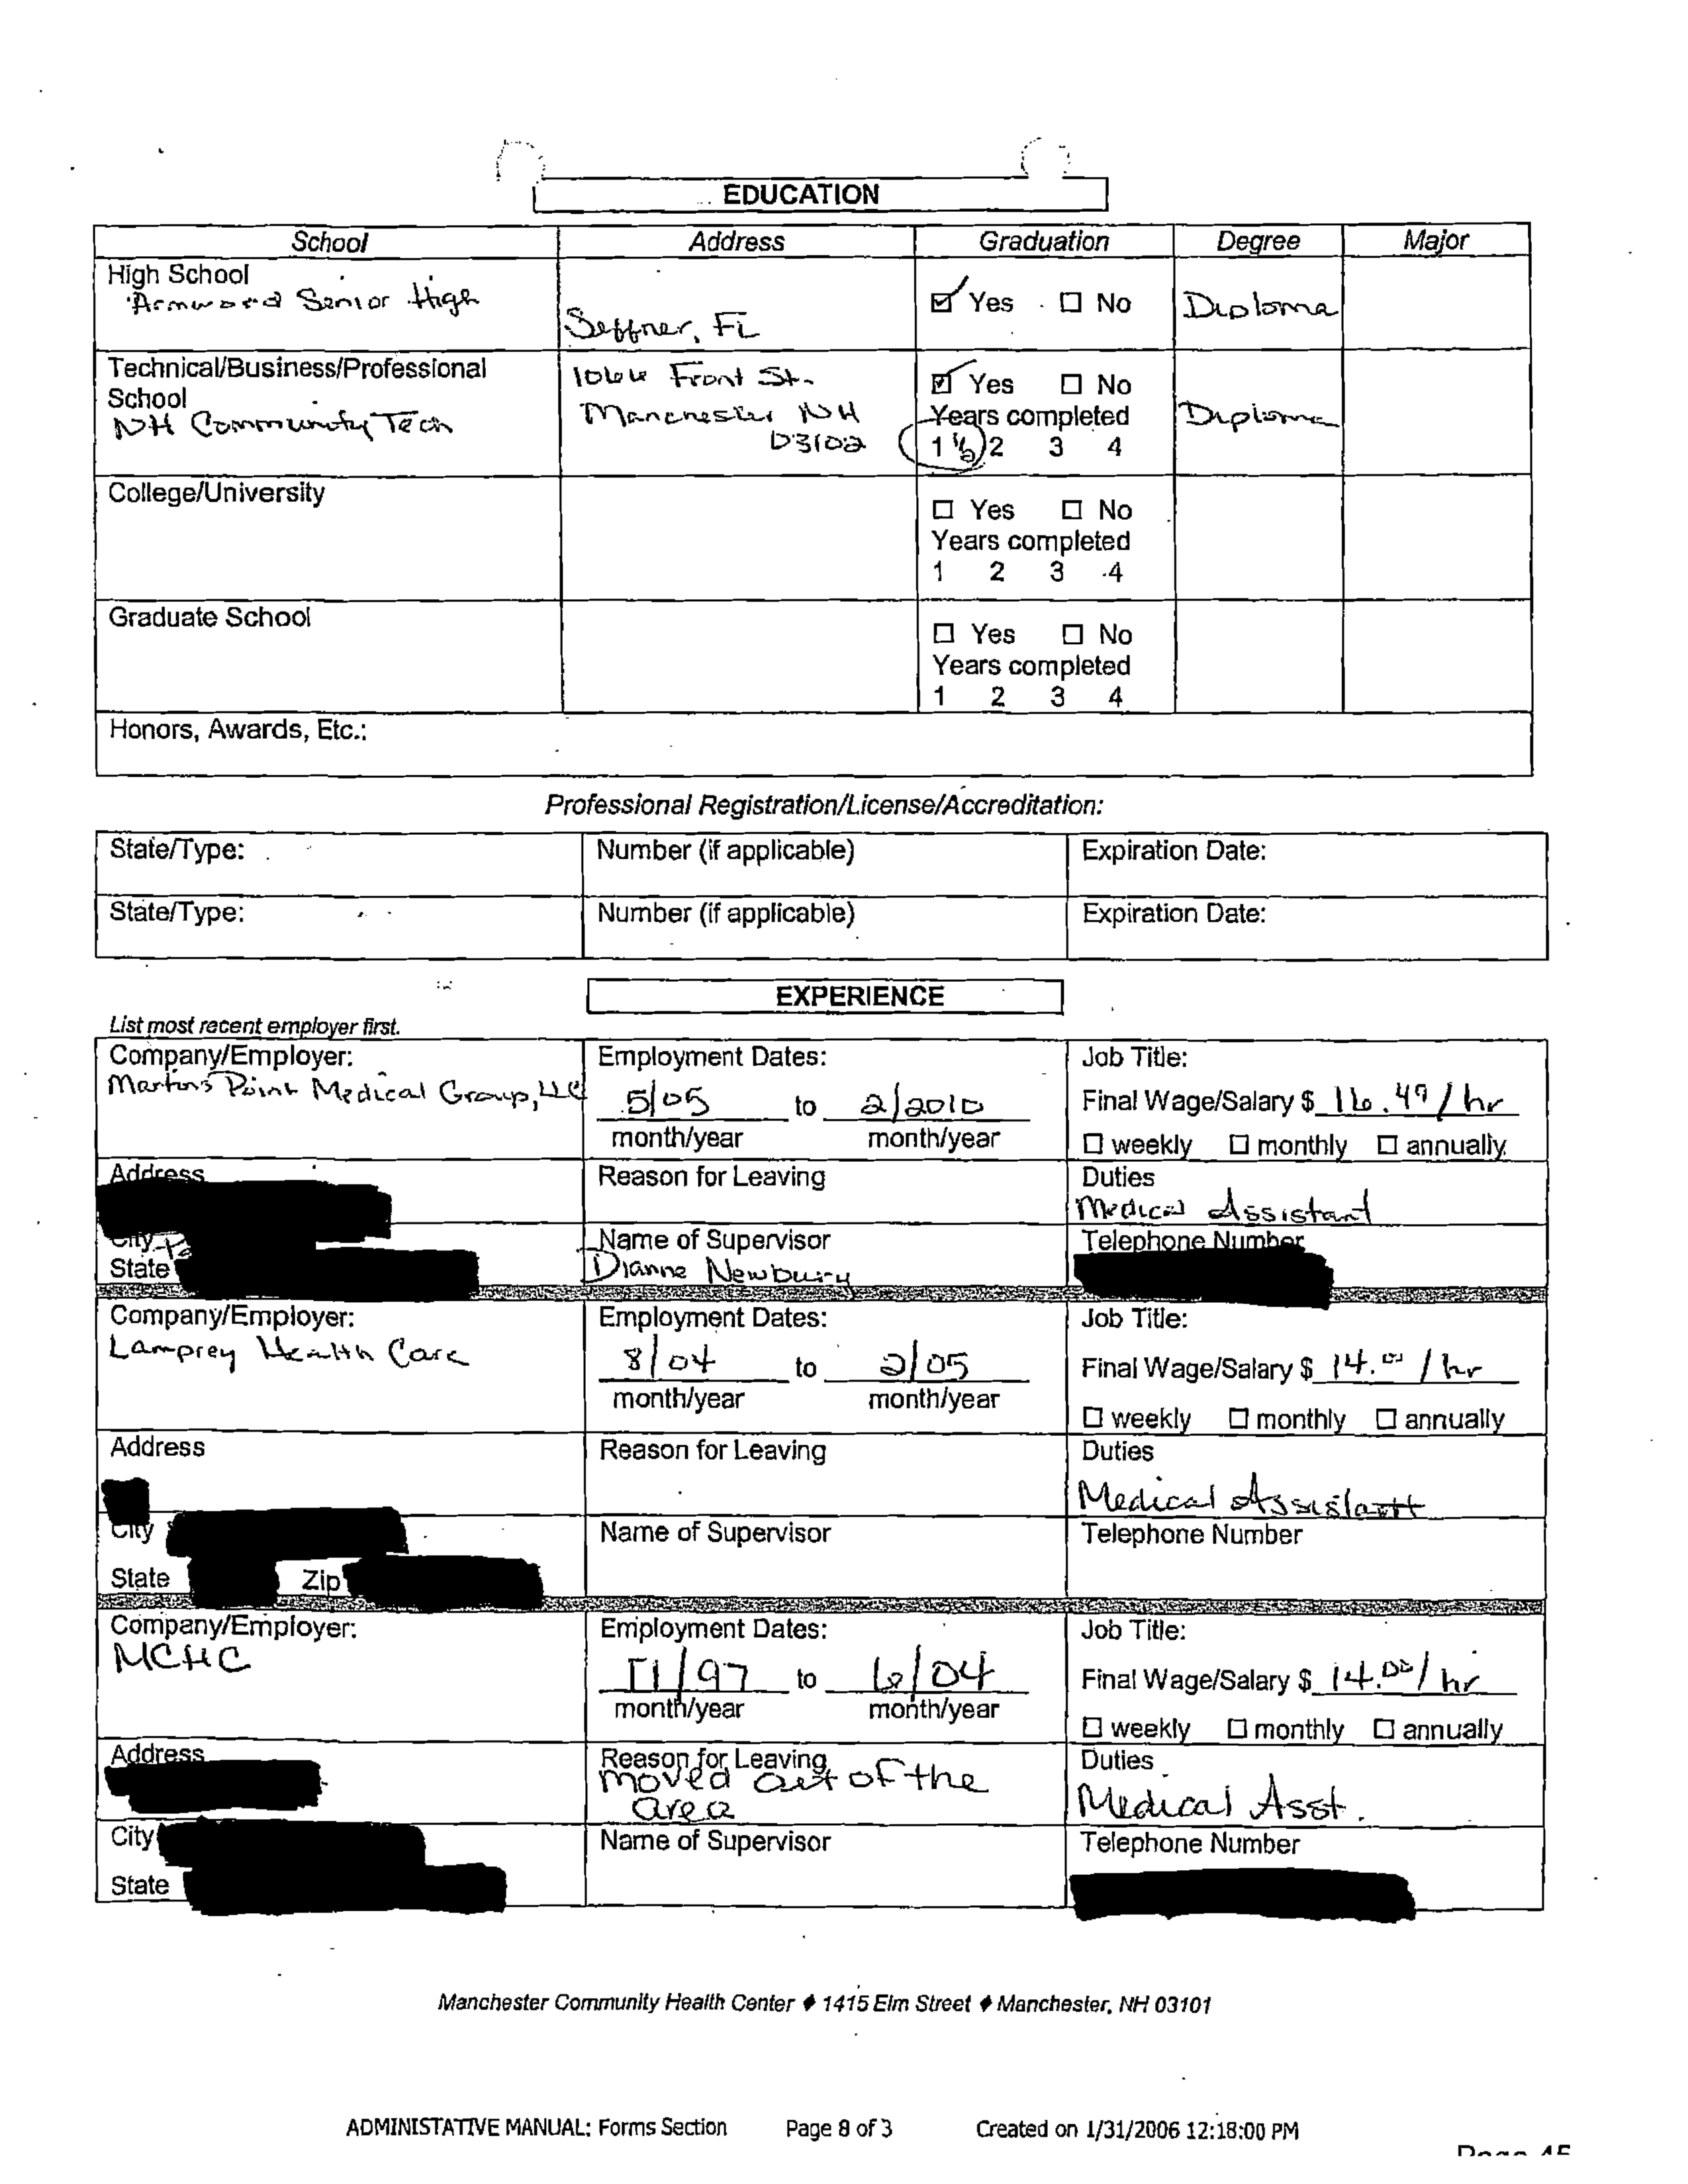 EDUCATION
School Address Graduation Degree Major
High School
Armwood Senior High
Seffner, FL
☑ Yes ☐ No
Diploma
Technical/Business/Professional
School
NH Community Tech
1066 Front St.
Manchester NH
03102
☑ Yes ☐ No
Years completed
1 1/2 2 3 4
Diploma
College/University
☐ Yes ☐ No
Years completed
1 2 3 4
Graduate School
☐ Yes ☐ No
Years completed
1 2 3 4
Honors, Awards, Etc.:
Professional Registration/License/Accreditation:
State/Type: Number (if applicable) Expiration Date:
State/Type: Number (if applicable) Expiration Date:
EXPERIENCE
List most recent employer first.
Company/Employer:
Martin's Point Medical Group, LLC
Employment Dates:
5/05 to 2/2010
month/year month/year
Job Title:
Final Wage/Salary $ 16.49/hr
☐ weekly ☐ monthly ☐ annually
Address
Reason for Leaving
Duties
Medical Assistant
City
State
Name of Supervisor
Dianne Newbury
Telephone Number
Company/Employer:
Lamprey Health Care
Employment Dates:
8/04 to 2/05
month/year month/year
Job Title:
Final Wage/Salary $ 14.00/hr
☐ weekly ☐ monthly ☐ annually
Address
Reason for Leaving
Duties
Medical Assistantt
City
State Zip
Name of Supervisor
Telephone Number
Company/Employer:
MCHC
Employment Dates:
11/97 to 6/04
month/year month/year
Job Title:
Final Wage/Salary $ 14.00/hr
☐ weekly ☐ monthly ☐ annually
Address
Reason for Leaving
moved out of the
area
Duties
Medical Asst.
City
State
Name of Supervisor
Telephone Number
Manchester Community Health Center ♦ 1415 Elm Street ♦ Manchester, NH 03101
ADMINISTATIVE MANUAL: Forms Section Page 8 of 3 Created on 1/31/2006 12:18:00 PM